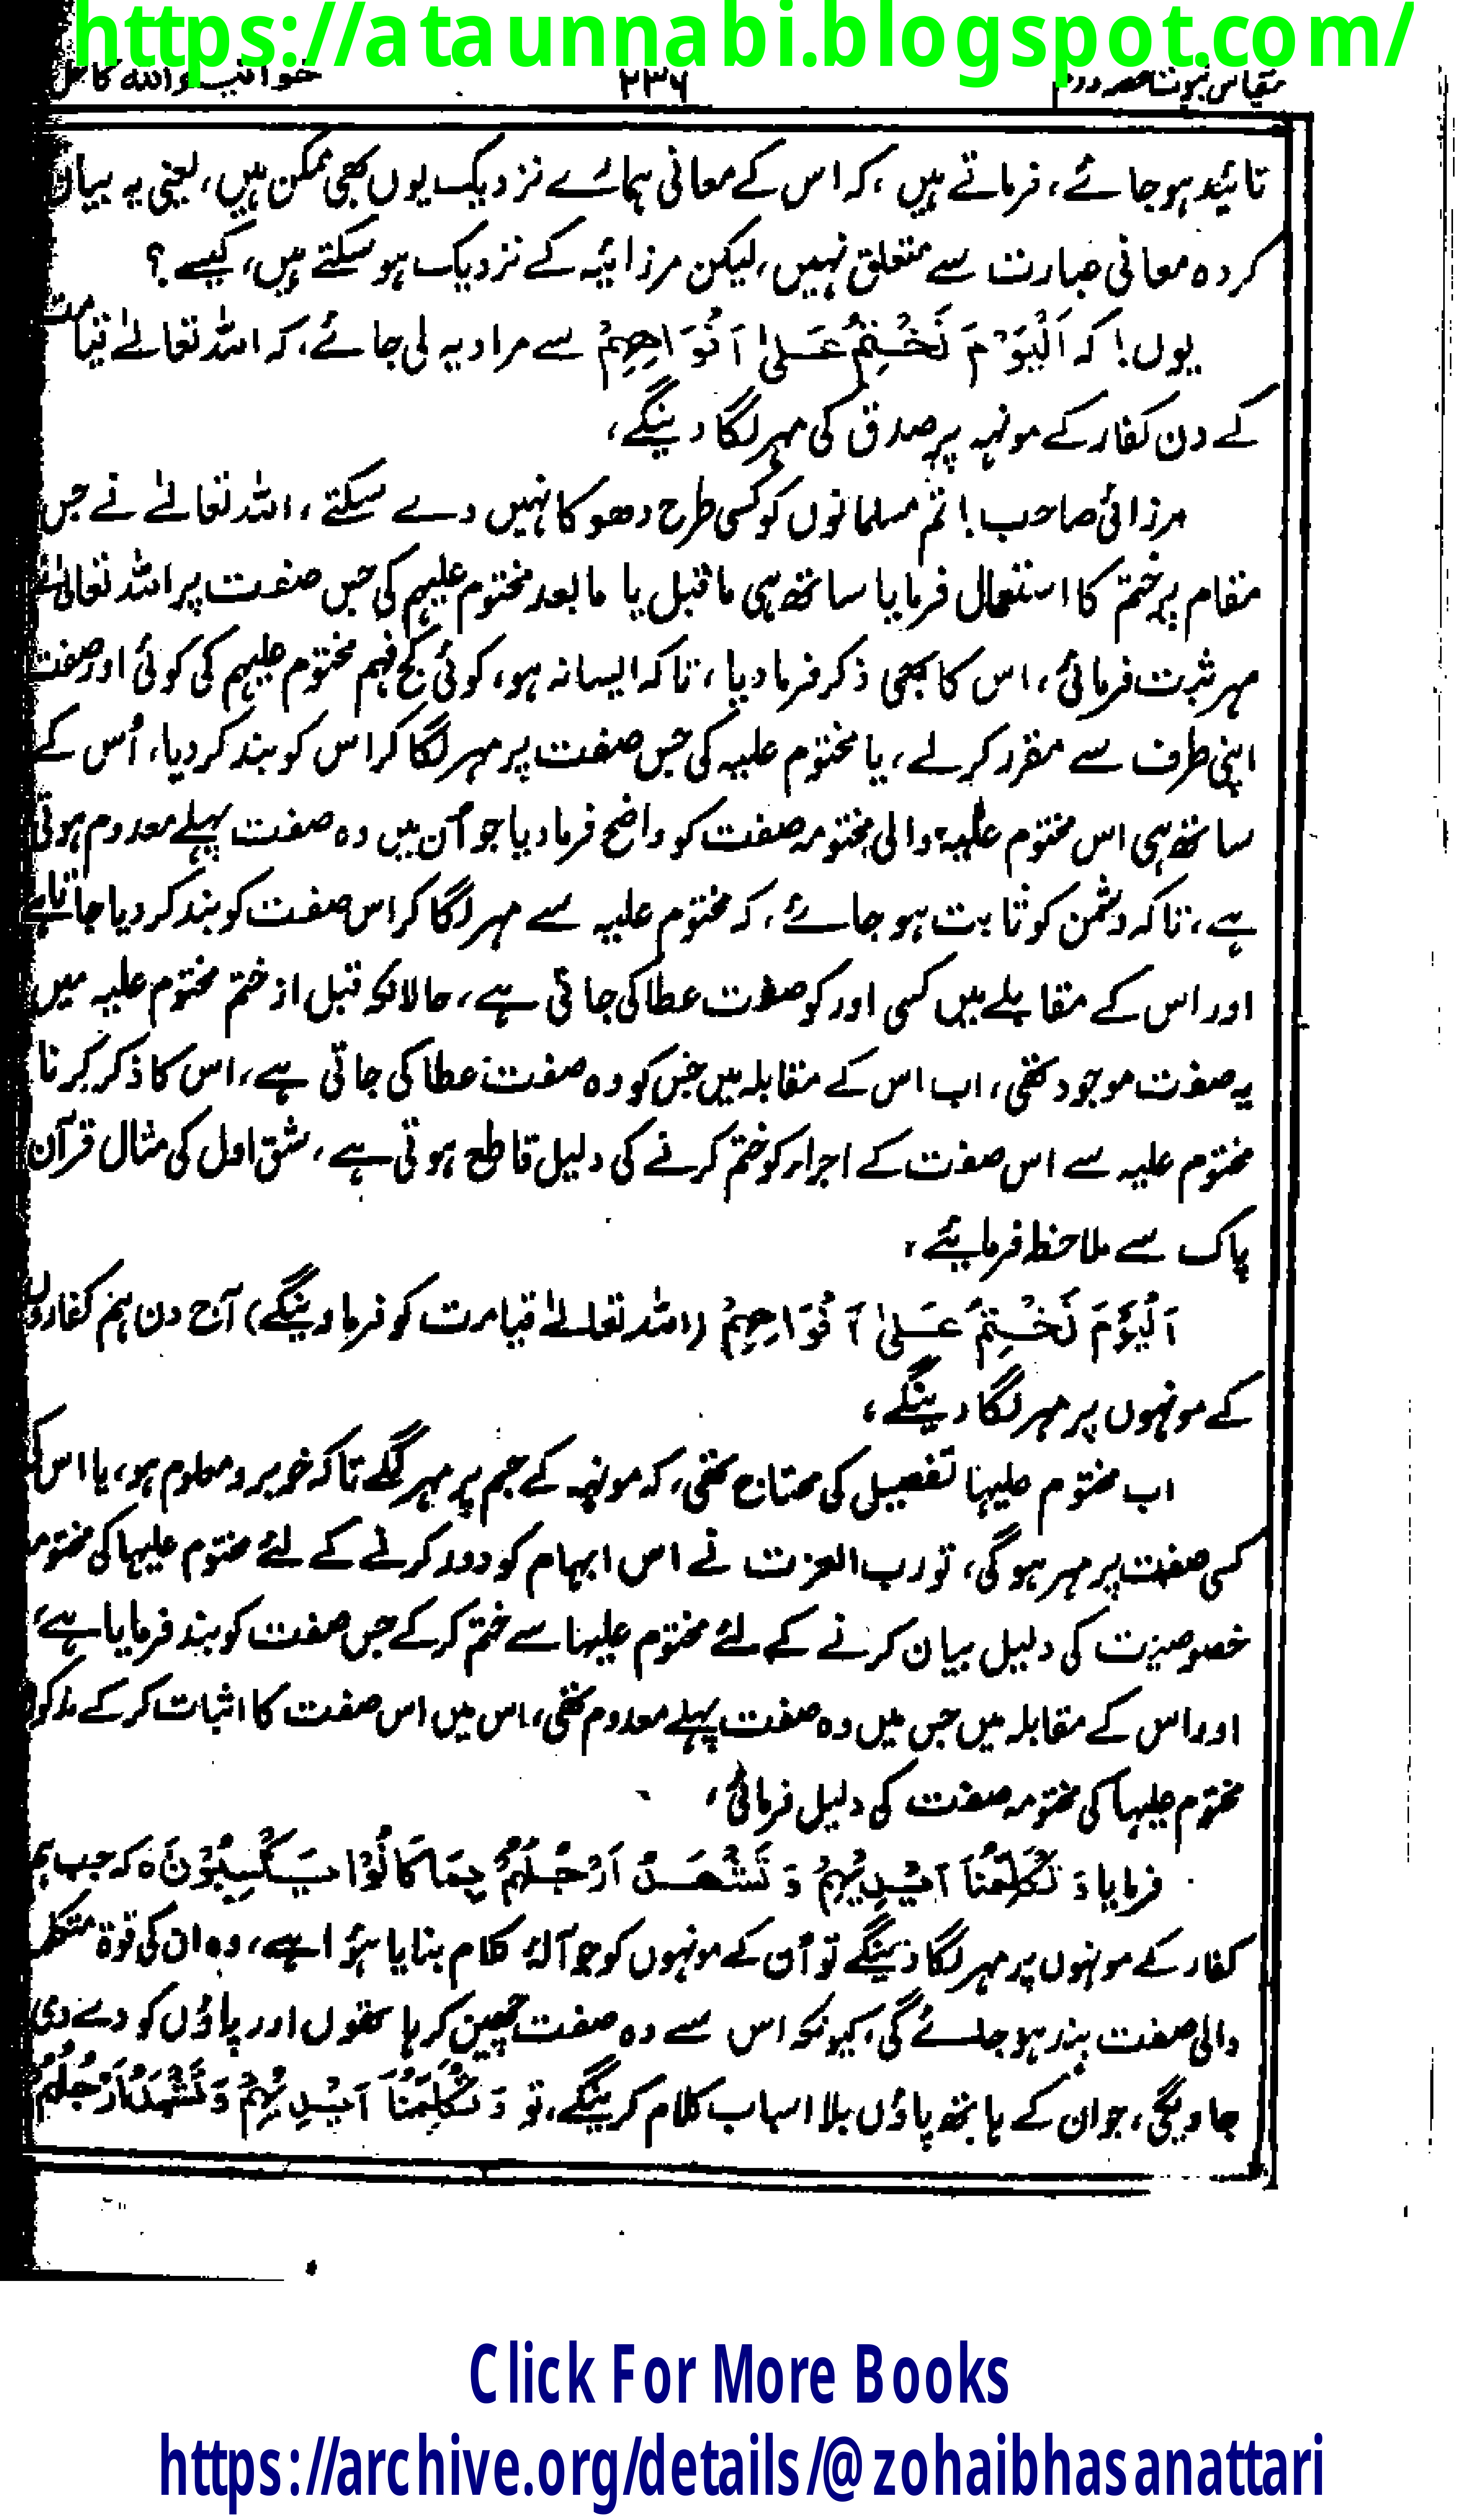 https://ataunnabi.blogspot.com/
مقیاس نبوت حصہ دوم ۲۳۶ خواتیم اللہ کا حل
تائید ہو جائے، فرماتے ہیں، کہ اس کے معانی ہمارے نزدیک یوں بھی ممکن ہیں، یعنی یہ بیان
کردہ معانی عبارت سے متعلق نہیں، لیکن مرزائیہ کے نزدیک ہو سکتے ہیں، کیسے؟
یوں! کہ اَلْیَوْمَ نَخْتِمُ عَلٰی اَفْوَاھِھِمْ سے مراد یہ لی جائے، کہ اللہ تعالےٰ قیامت
کے دن کفار کے مونہہ پر صدق کی مہر لگا دینگے،
مرزائی صاحب! تم مسلمانوں کو کسی طرح دھوکا نہیں دے سکتے، اللہ تعالےٰ نے جس
مقام پر ختم کا استعمال فرمایا ساتھ ہی ماقبل یا مابعد مختوم علیہم کی جس صفت پر اللہ تعالیٰ نے
مہر ثبت فرمائی، اس کا بھی ذکر فرما دیا، تاکہ ایسا نہ ہو، کوئی کج فہم مختوم علیہم کی کوئی اور صفت
اپنی طرف سے مقرر کر لے، یا مختوم علیہ کی جس صفت پر مہر لگا کر اس کو بند کر دیا، اُس کے
ساتھ ہی اس مختوم علیہ والی مختومہ صفت کو واضح فرما دیا جو اُن میں وہ صفت پہلے معدوم ہوتی
ہے، تاکہ دشمن کو ثابت ہو جائے، کہ مختوم علیہ سے مہر لگا کر اس صفت کو بند کر دیا جاتا ہے
اور اس کے مقابلے میں کسی اور کو صفت عطا کی جاتی ہے، حالانکہ قبل از ختم مختوم علیہ میں
یہ صفت موجود تھی، اب اس کے مقابلہ میں جس کو وہ صفت عطا کی جاتی ہے، اس کا ذکر کرنا
مختوم علیہ سے اس صفت کے اجراء کو ختم کرنے کی دلیل قاطع ہوتی ہے، شق اول کی مثال قرآن
پاک سے ملاحظہ فرمایئے،
اَلْیَوْمَ نَخْتِمُ عَلٰی اَفْوَاھِھِمْ (اللہ تعالےٰ قیامت کو فرما دینگے) آج دن ہم کفاروں
کے مونہوں پر مہر لگا دینگے،
اب مختوم علیہا تفصیل کی محتاج تھی، کہ مونہہ کے جسم پر مہر لگے تاکہ خوبرو معلوم ہو، یا اس کی
کسی صفت پر مہر ہوگی، تو رب العزت نے اس ابہام کو دور کرنے کے لئے مختوم علیہا کی مختومہ
خصوصیت کی دلیل بیان کرنے کے لئے مختوم علیہا سے ختم کر کے جس صفت کو بند فرمایا ہے،
اور اس کے مقابلہ میں جس میں وہ صفت پہلے معدوم تھی، اس میں اس صفت کا اثبات کر کے مذکور
مختوم علیہا کی مختومہ صفت کی دلیل فرمائی،
فرمایا وَ تُکَلِّمُنَا اَیْدِیْھِمْ وَ تَشْھَدُ اَرْجُلُھُمْ بِمَا کَانُوْا یَکْسِبُوْنَ ہ کہ جب ہم
کفار کے مونہوں پر مہر لگا دینگے تو اُن کے مونہوں کو جو آلۂ کلام بنایا ہوا ہے، وہ ان کی قوۃ متکلمہ
والی صفت بند ہو جائے گی، کیونکہ اس سے وہ صفت چھین کر ہاتھوں اور پاؤں کو دے دی
جاویگی، جو ان کے ہاتھ پاؤں بلا اسباب کلام کرینگے، تو وَ تُکَلِّمُنَا اَیْدِیْھِمْ وَ تَشْھَدُ اَرْجُلُھُمْ
Click For More Books
https://archive.org/details/@zohaibhasanattari